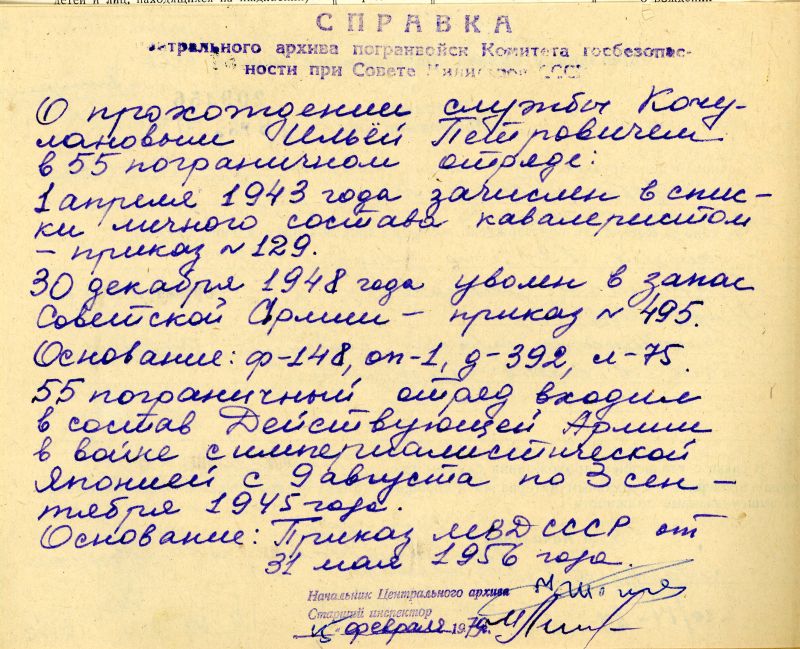 детей и лиц, находящихся на иждивении
СПРАВКА
Центрального архива погранвойск Комитета госбезопас-
ности при Совете Министров СССР
О прохождении службы Кочу-
лановым Ильёй Петровичем
в 55 пограничном отряде:
1 апреля 1943 года зачислен в спис-
ки личного состава кавалеристом
- приказ №129.
30 декабря 1948 года уволен в запас
Советской Армии - приказ №495.
Основание: ф-148, оп-1, д-392, л-75.
55 пограничный отряд входил
в состав Действующей Армии
в войне с империалистической
Японией с 9 августа по 3 сен-
тября 1945 года.
Основание: Приказ МВД СССР от
31 мая 1956 года.
Начальник Центрального архива
Старший инспектор
февраля